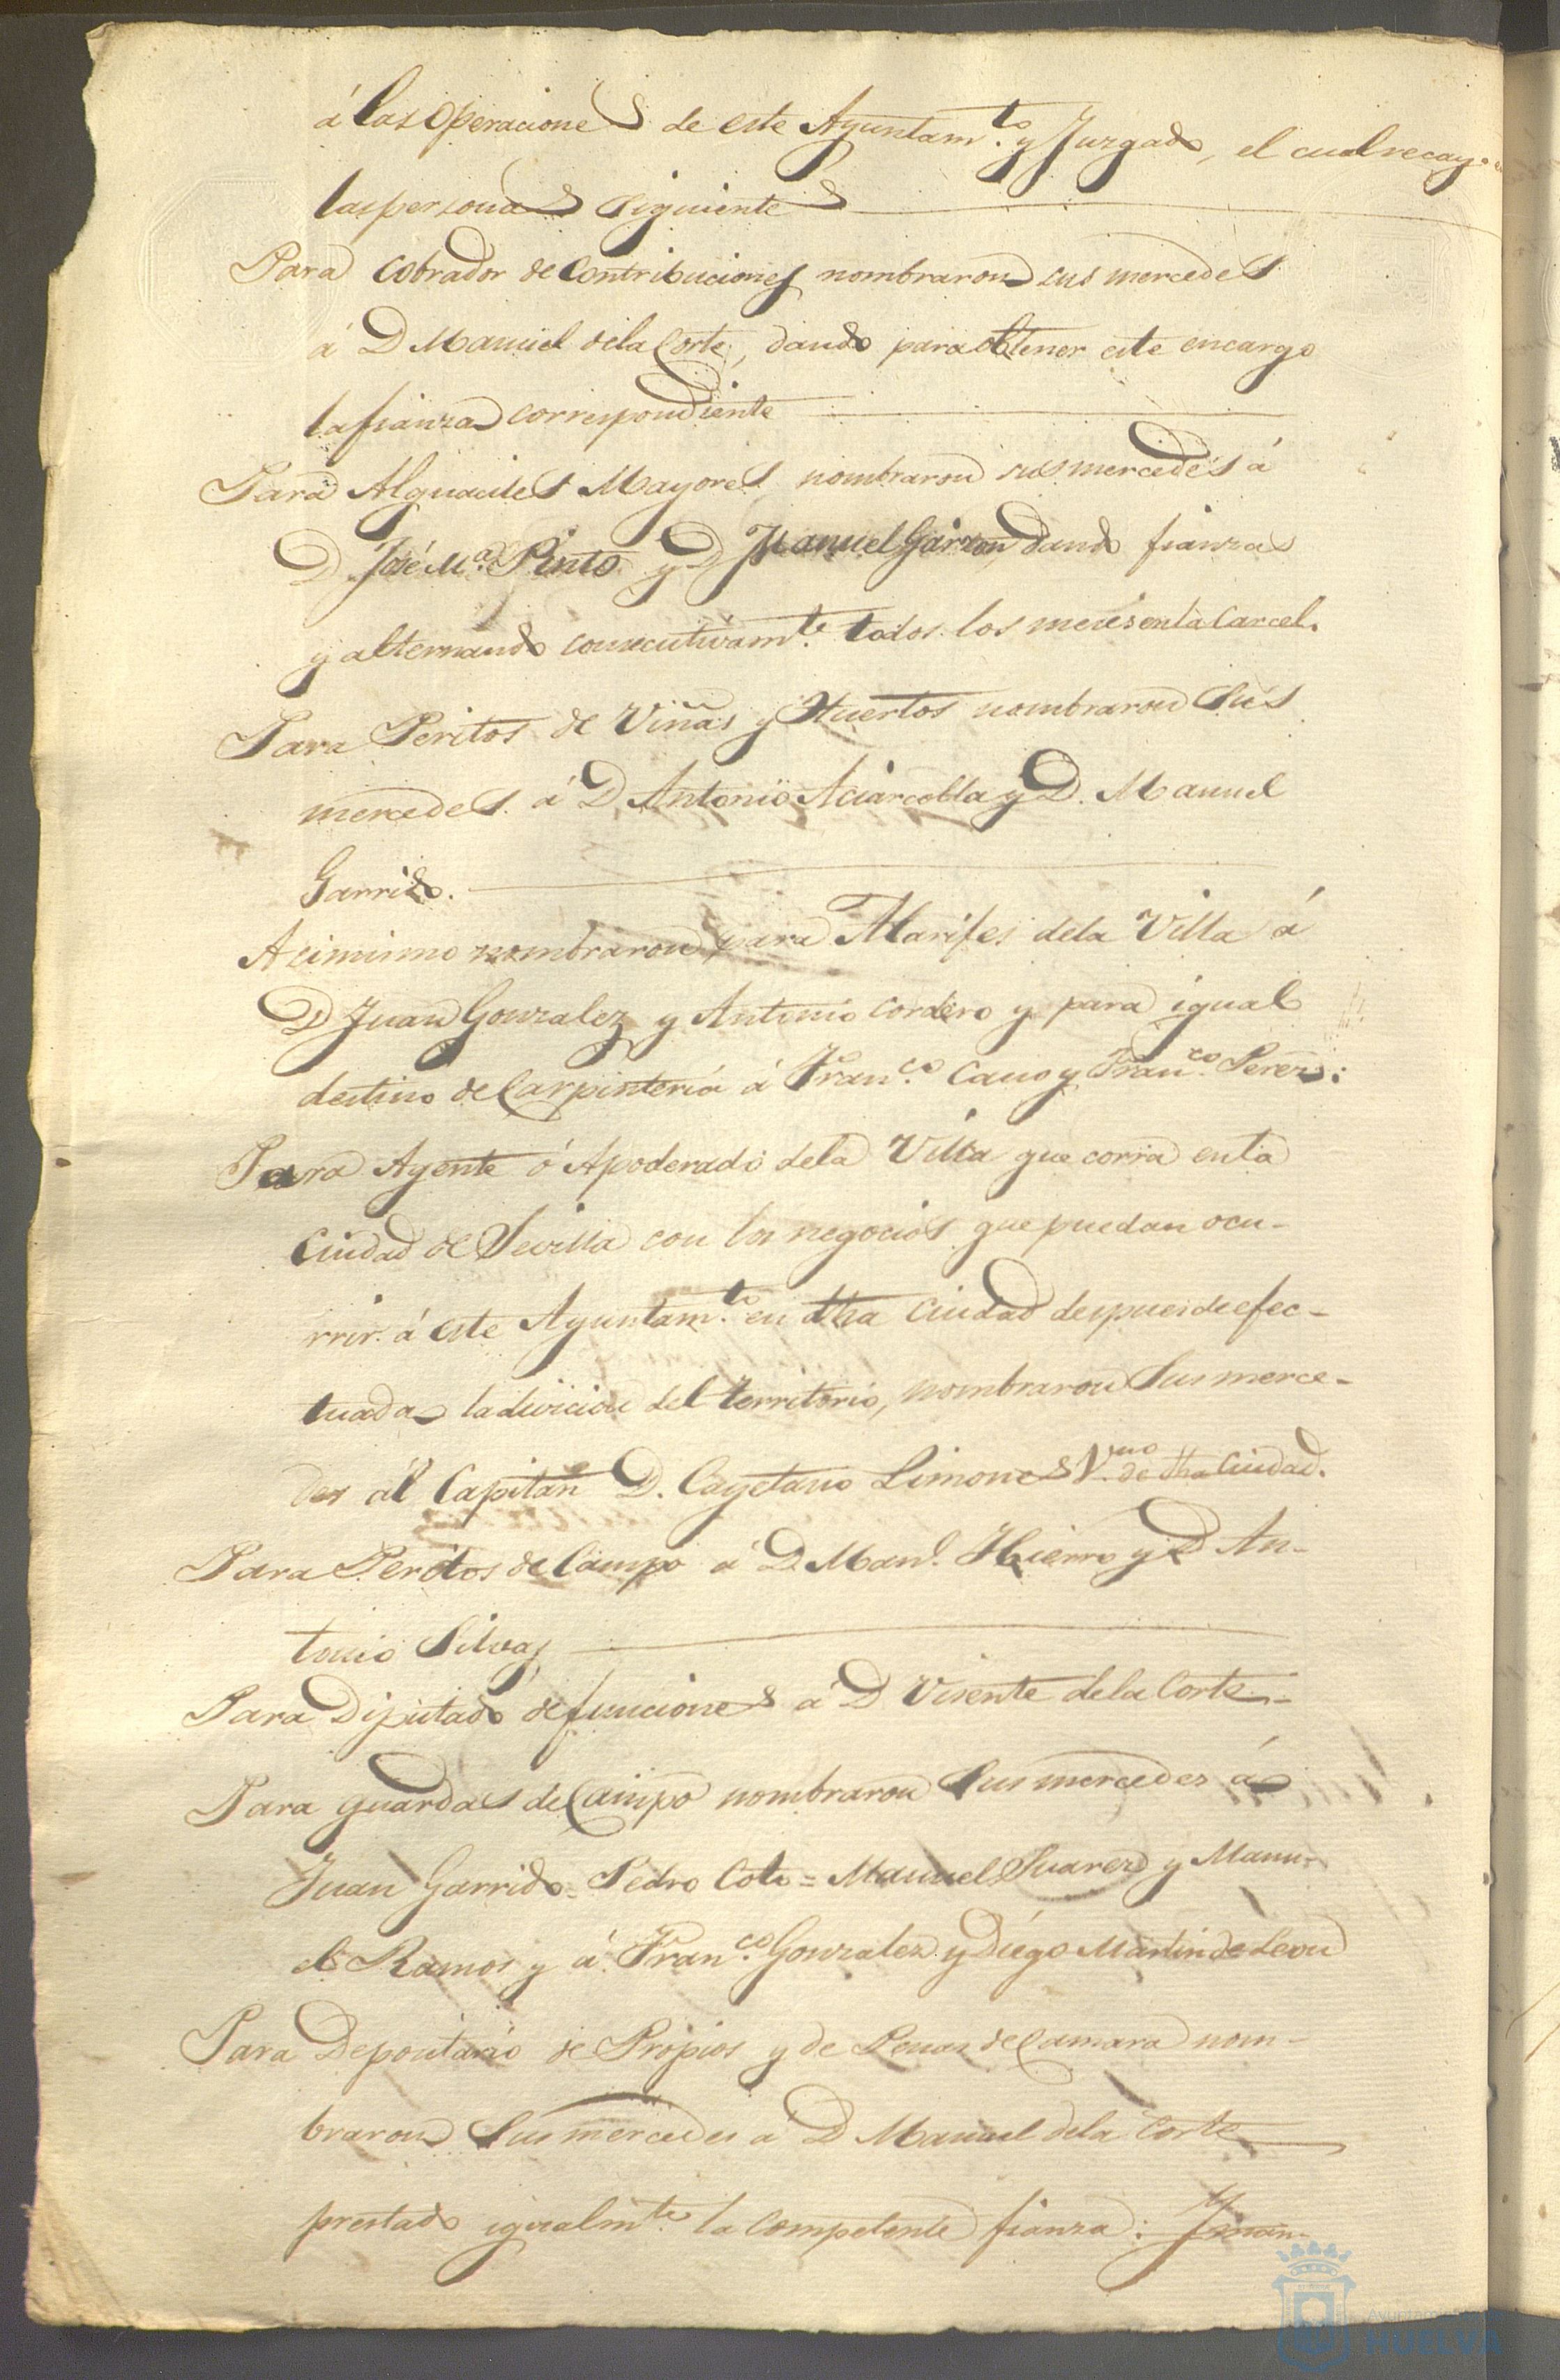 á las Operaciones de este Ayuntam.to y Juzgado, el cual recayo
las personas siguientes
Para cobrador de Contribuciones nombraron sus mercedes
á D Manuel de la Corte, dando para obtener este encargo
la fianza correspondiente
Para Alguaciles Mayores nombraron sus mercedes á
D. José M.a Pinto y D Manuel Garzon, dando fianzas
y alternando consecutivam.te todos los meses en la Carcel.
Para Peritos de Viñas y Huertos nombraron sus
mercedes á D. Antonio y D. Manuel
Garrido.
Acimismo nombraron para Alarifes de la Villa á
D Juan Gonzalez y Antonio Cordero y para igual
destino de Carpinteria á Fran.co Cano y Fran.co Perez:
Para Agente ó Apoderado de la Villa que corra en la
Ciudad de Sevilla con los negocios que puedan ocu-
rrir á este Ayuntam.to en dha Ciudad despues de efec-
tuada la divicion del territorio, nombraron Sus merce-
des al Capitan D. Cayetano Limones V.no de dha Ciudad.
Para Peritos de Campo á D. Man.l Hierro y D An-
tonio Silva
Para Diputado de funciones á D Visente de la Corte
Para guardas de Campo nombraron Sus mercedes á
Juan Garrido = Pedro Coto = Manuel Suarez y Manu-
el Ramos y á Fran.co Gonzalez y Diego Martin de Leon
Para Depositario de Propios y de Penas de Camara nom-
braron Sus mercedes á D Manuel de la Corte
prestado igualm.te la competente fianza:
HUELVA